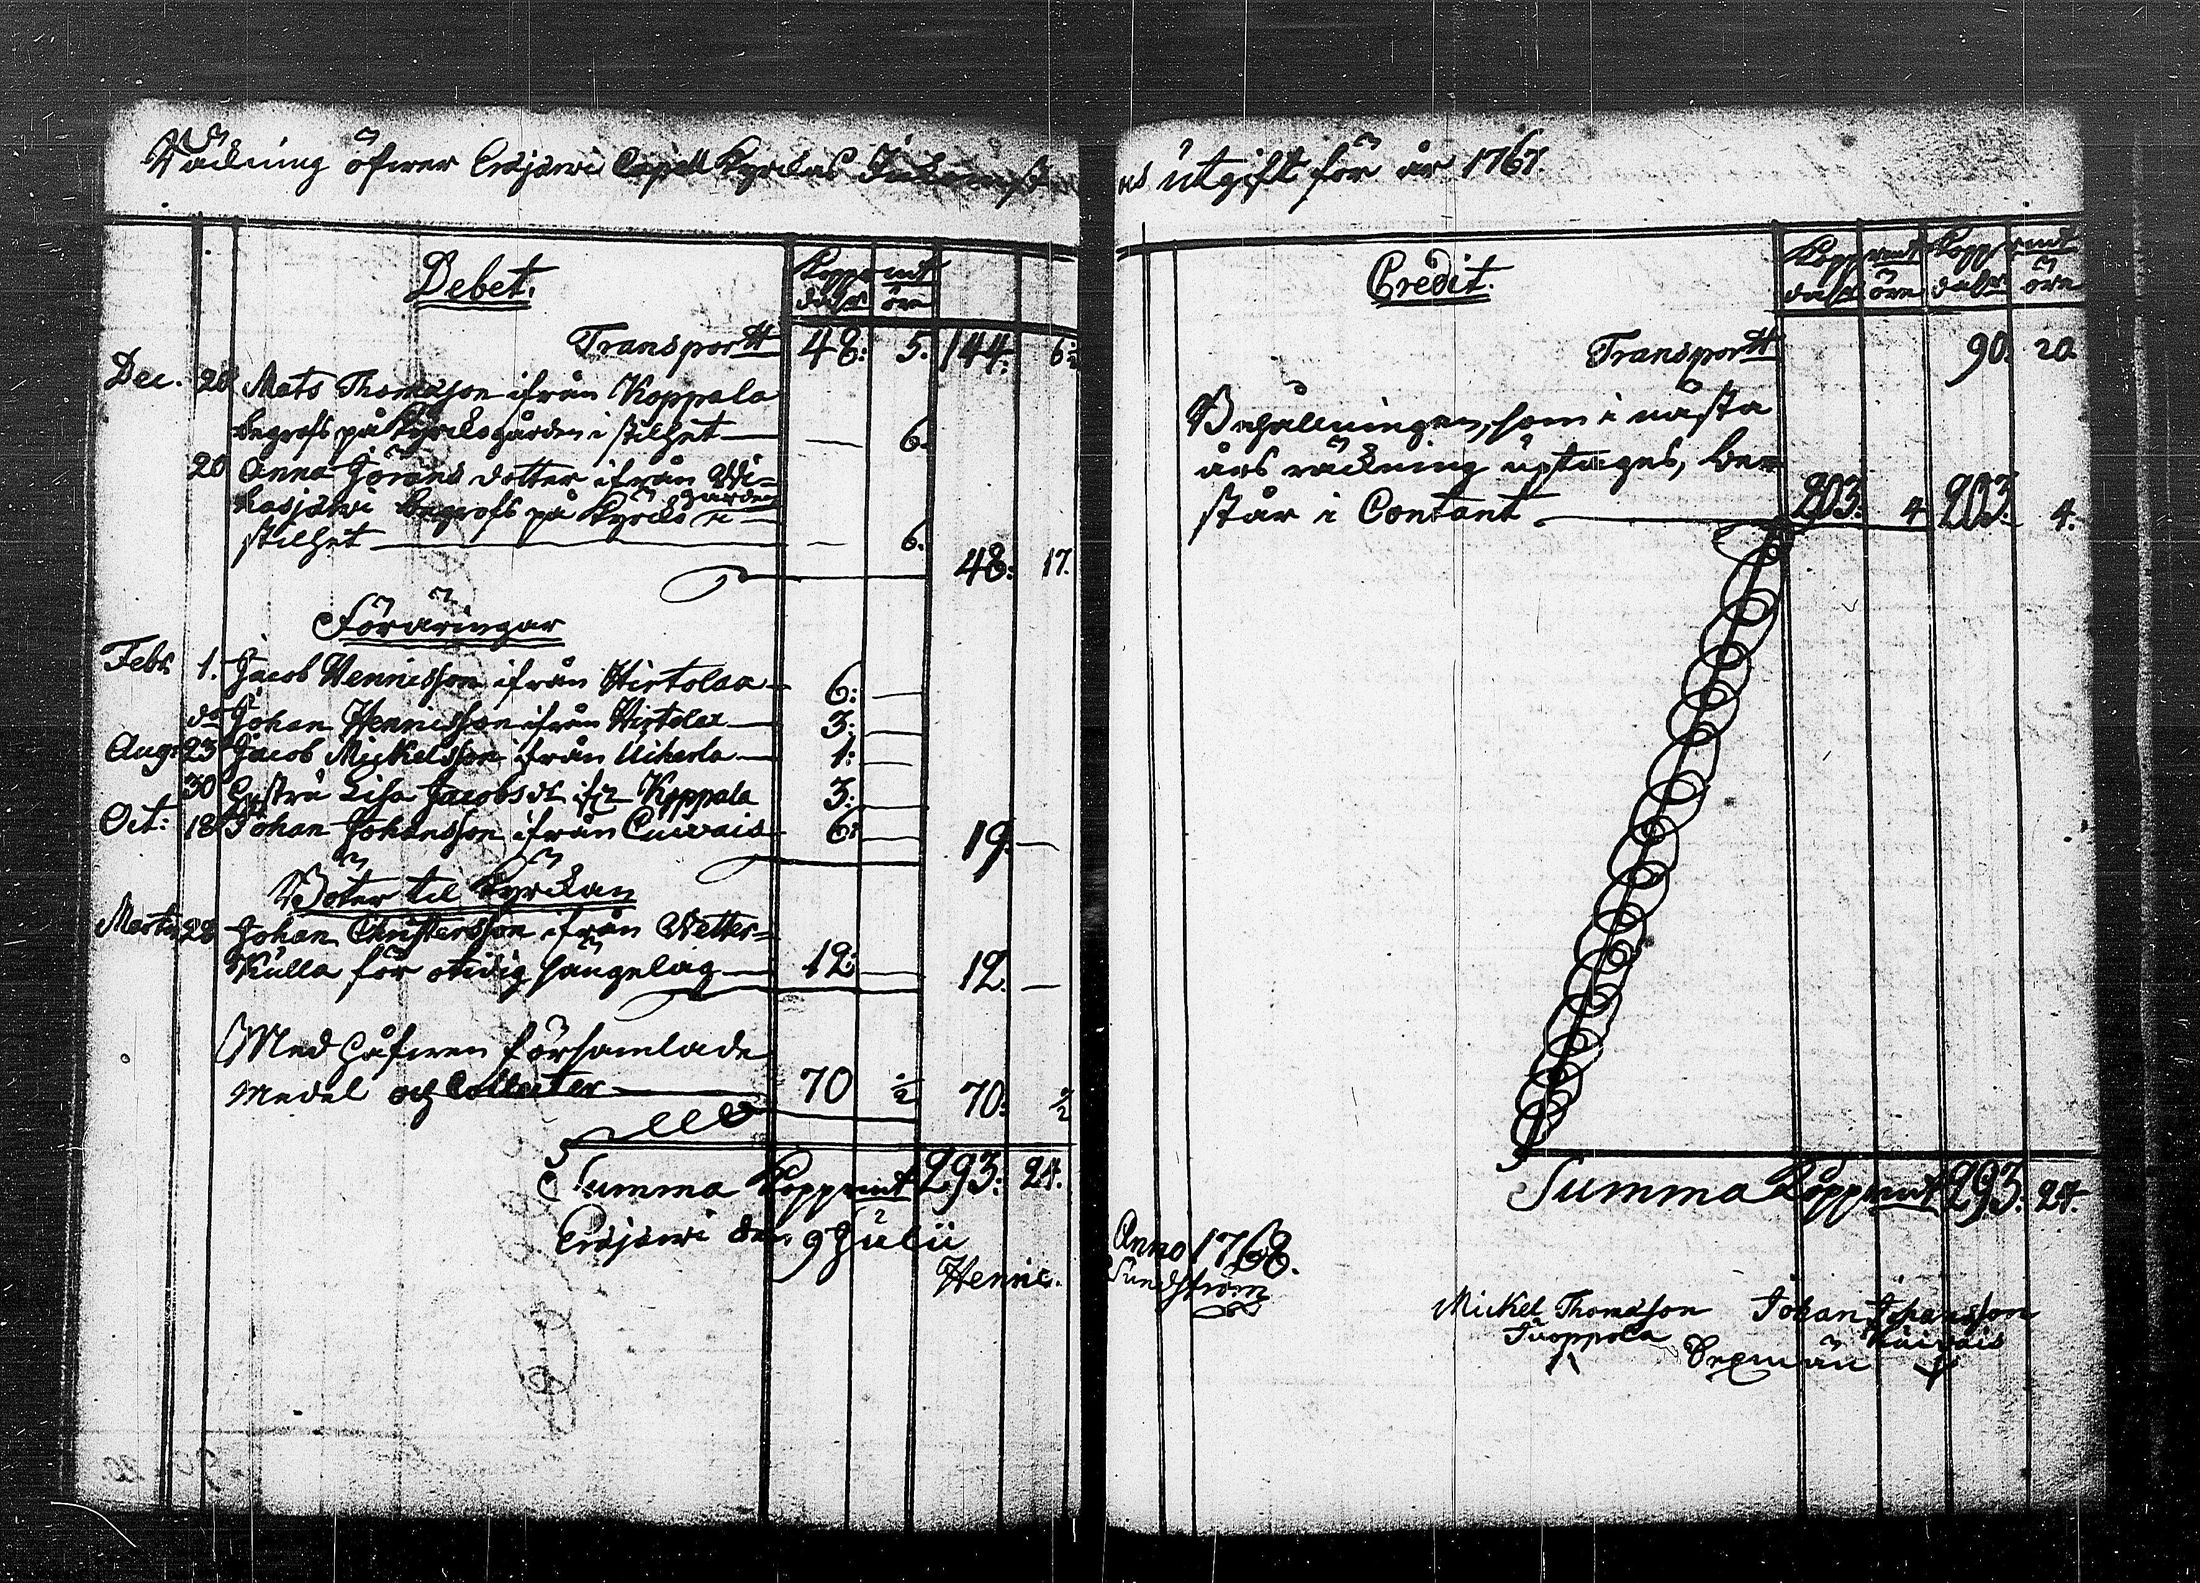 Räckning öfwer Evijärvi Capell Kyrckas Inkomst
och utgift för år 1767.
Debet.
Koppmt
dalr öre
Transportt 48: 5. 144: 6½
Dec. 20 Mats Thomasson ifrån Koppala
begrofs på Kyrckogården i stilhet — — 6.
20 Anna Jörans dotter ifrån Wi=
kasjärwi begrofs på Kyrcko gården i
stilhet — — 6.
48: 17.
Föräringar
Febr. 1. Jacob Hennicsson ifrån Hirtolaa — 6: —
do Johan Hennicsson ifrån Hirtolaa — 3: —
Aug: 23 Jacob Mickelsson ifrån — 1: —
30 Hustru Lisa Jacobs dr ifr Koppala 3: —
Oct: 18 Johan Johansson ifrån Cuivais — 6: — 19. —
Böter til Kyrckan
Martii 28 Johan Christersson ifrån Wetter=
Kulla för otidig sängelag — 12: — 12. —
Med Håfwen församlade
Medel och Collecter — 70 ½ 70: ½
Summa Koppmt 293: 24.
Evijärwi den 9 Julii
Henric.
Credit.
Koppmt Koppmt
dalr öre dalr öre
Transportt 90. 20.
Behållningen, som i nästa
års räckning uptages, be=
står i Contant — 203: 4 203: 4.
Summa Koppmt 293: 24.
Anno 1768.
Sundström
Mickel Thomasson Johan Johansson
Tuoppola Kuivais
Sexmän